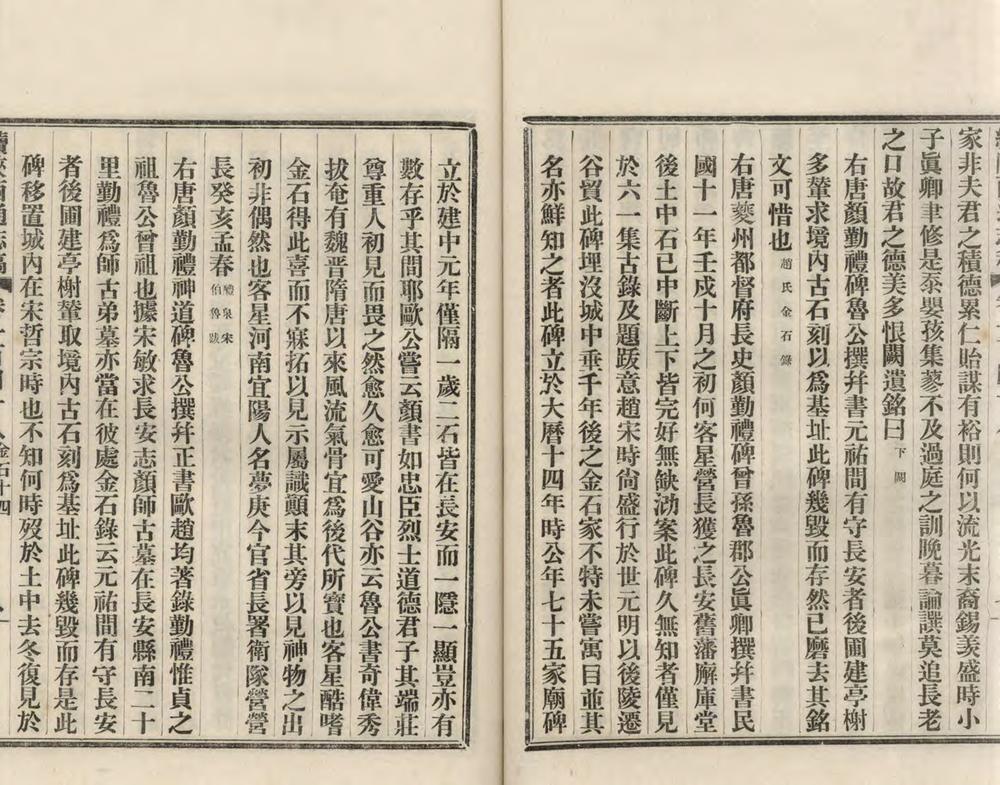 家非夫君之積德累仁貽謀有裕則何以流光末裔錫羨盛時小
子眞卿聿修是忝嬰孩集蓼不及過庭之訓晚暮論譔莫追長老
之口故君之德美多恨闕遺銘曰下闕
右唐顏勤禮碑魯公撰幷書元祐間有守長安者後圃建亭榭
多輦求境內古石刻以爲基址此碑幾毀而存然已磨去其銘
文可惜也趙氏金石錄
右唐夔州都督府長史顏勤禮碑曾孫魯郡公眞卿撰幷書民
國十一年壬戌十月之初何客星營長獲之長安舊藩廨庫堂
後土中石已中斷上下皆完好無缺泐案此碑久無知者僅見
於六一集古錄及題跋意趙宋時尙盛行於世元明以後陵遷
谷貿此碑埋沒城中垂千年後之金石家不特未嘗寓目並其
名亦鮮知之者此碑立於大曆十四年時公年七十五家廟碑
立於建中元年僅隔一歲二石皆在長安而一隱一顯豈亦有
數存乎其間耶歐公嘗云顏書如忠臣烈士道德君子其端莊
尊重人初見而畏之然愈久愈可愛山谷亦云魯公書奇偉秀
拔奄有魏晋隋唐以來風流氣骨宜爲後代所寶也客星酷嗜
金石得此喜而不寐拓以見示屬識顚末其旁以見神物之出
初非偶然也客星河南宜陽人名夢庚今官省長署衛隊營營
長癸亥孟春醴泉宋伯魯跋
右唐顏勤禮神道碑魯公撰幷正書歐趙均著錄勤禮惟貞之
祖魯公曾祖也據宋敏求長安志顏師古墓在長安縣南二十
里勤禮爲師古弟墓亦當在彼處金石錄云元祐間有守長安
者後圃建亭榭輦取境內古石刻爲基址此碑幾毀而存是此
碑移置城內在宋哲宗時也不知何時歿於土中去冬復見於